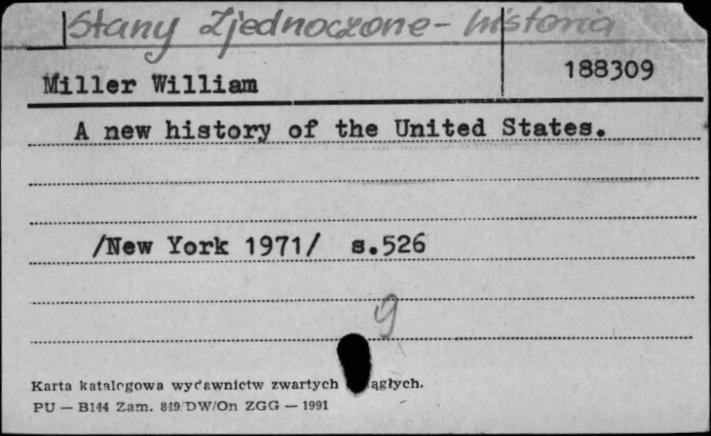 Stany Zjednoczone - historia
Miller William
188309
A new history of the United States.
/New York 1971/ s.526
g
Karta katalogowa wydawnictw zwartych ągłych.
PU — B144 Zam. 849/DW/On ZGG — 1991